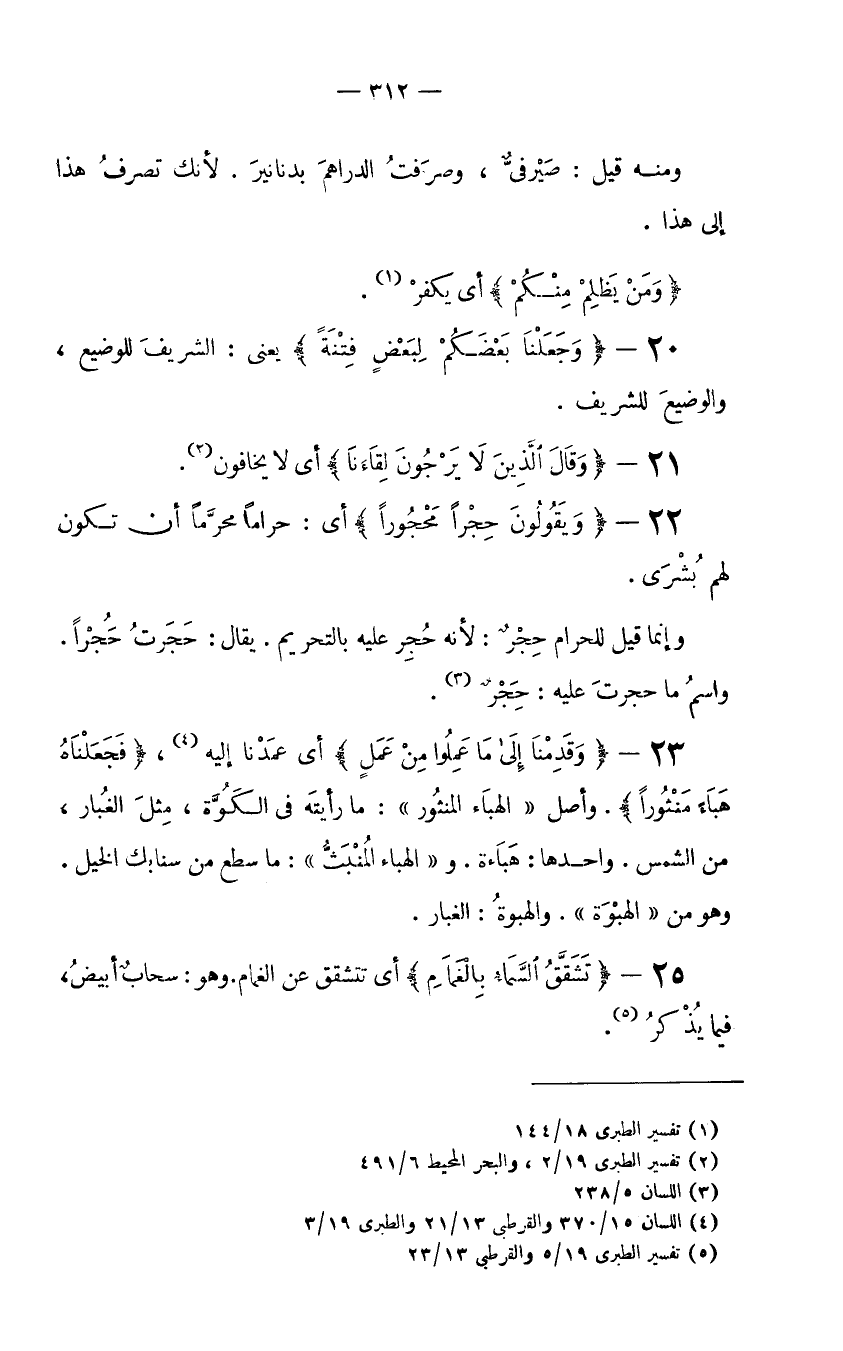 — ٣١٢ —
ومنه قيل : صَيْرفىٌّ ، وصرَفتُ الدراهمَ بدنانيرَ . لأنك تصرفُ هذا
إلى هذا .
﴿ وَمَنْ يَظْلِمْ مِنْكُمْ ﴾ أى يكفرْ (١) .
٢٠ — ﴿ وَجَعَلْنَا بَعْضَكُمْ لِبَعْضٍ فِتْنَةً ﴾ يعنى : الشريفَ للوضيع ،
والوضيعَ للشريف .
٢١ — ﴿ وَقَالَ ٱلَّذِينَ لَا يَرْجُونَ لِقَاءَنَا ﴾ أى لا يخافون (٢) .
٢٢ — ﴿ وَيَقُولُونَ حِجْراً مَحْجُوراً ﴾ أى : حراماً محرَّماً أن تكون
لهم بُشْرَى .
وإنما قيل للحرام حِجْرٌ : لأنه حُجِر عليه بالتحريم . يقال : حَجَرتُ حَُجْراً .
واسمُ ما حجرتَ عليه : حِجْرٌ (٣) .
٢٣ — ﴿ وَقَدِمْنَا إِلَىٰ مَا عَمِلُوا مِنْ عَمَلٍ ﴾ أى عمَدْنا إليه (٤) ، ﴿ فَجَعَلْنَاهُ
هَبَاءً مَنْثُوراً ﴾ . وأصل « الهبَاء المنثور » : ما رأيتَه فى الكَُوَّة ، مِثلَ الغُبار ،
من الشمس . واحدها : هَبَاءة . و « الهباء المُنْبَثُّ » : ما سطع من سنابك الخيل .
وهو من « الهبْوَة » . والهبوةُ : الغبار .
٢٥ — ﴿ تَشَقَّقُ ٱلسَّمَاءُ بِالْغَمَامِ ﴾ أى تتشقق عن الغمام . وهو : سحابٌ أبيضُ ،
فيما يُذْكرُ (٥) .
(١) تفسير الطبرى ١٨/١٤٤
(٢) تفسير الطبرى ١٩/٢ ، والبحر المحيط ٦/٤٩١
(٣) اللسان ٥/٢٣٨
(٤) اللسان ١٥/٣٧٠ والقرطبى ١٣/٢١ والطبرى ١٩/٣
(٥) تفسير الطبرى ١٩/٥ والقرطبى ١٣/٢٣